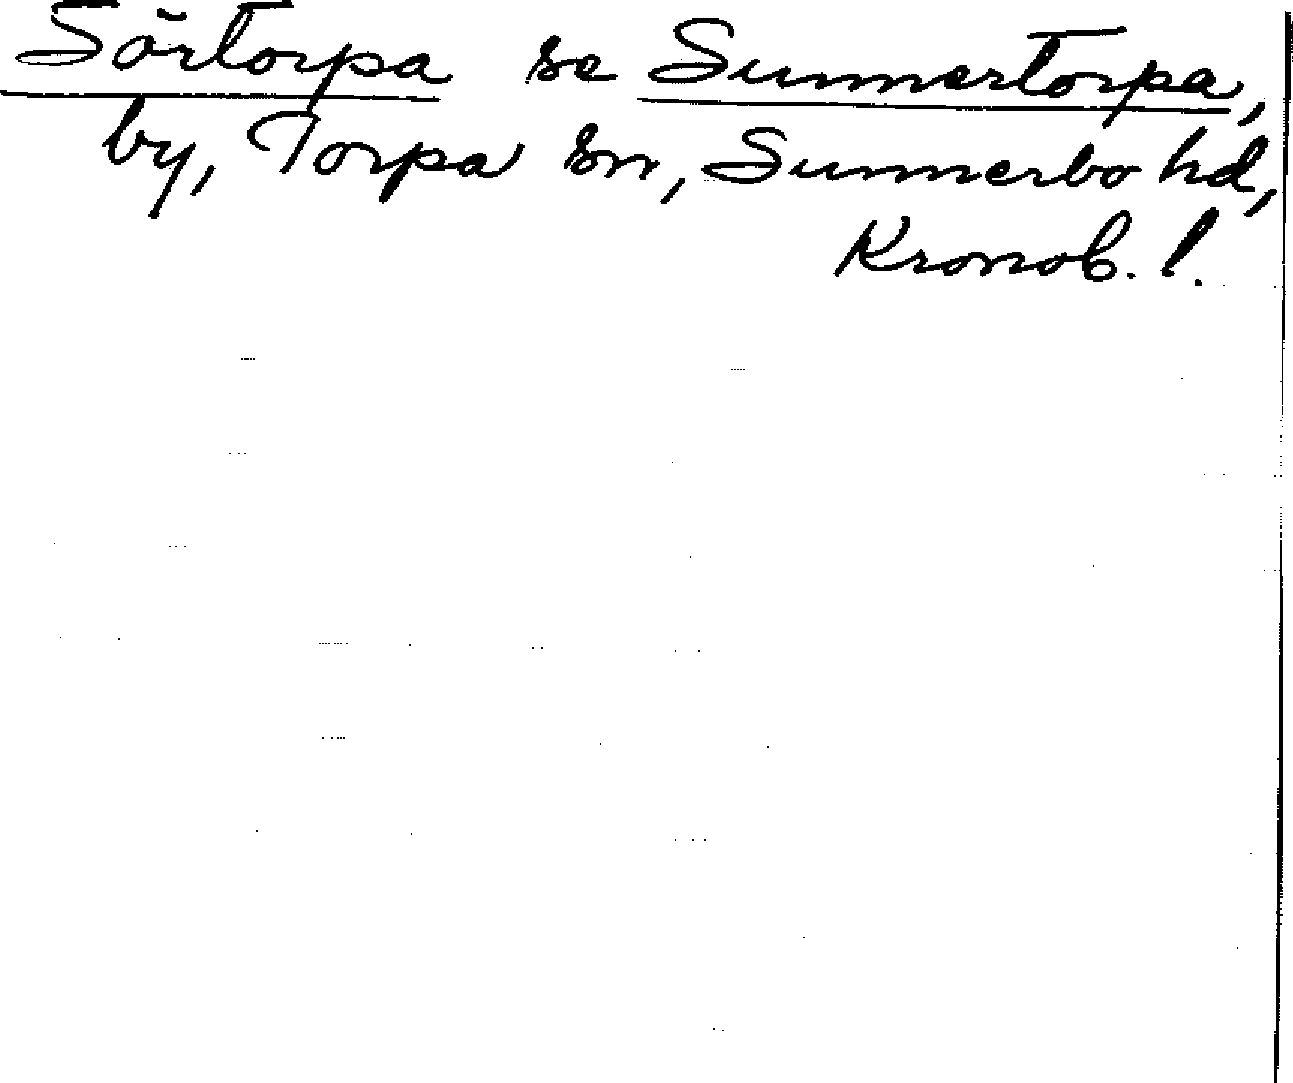 Sörtorpa se Sunnertorpa,
by, Torpa sn, Sunnerbo hd,
Kronob. l.